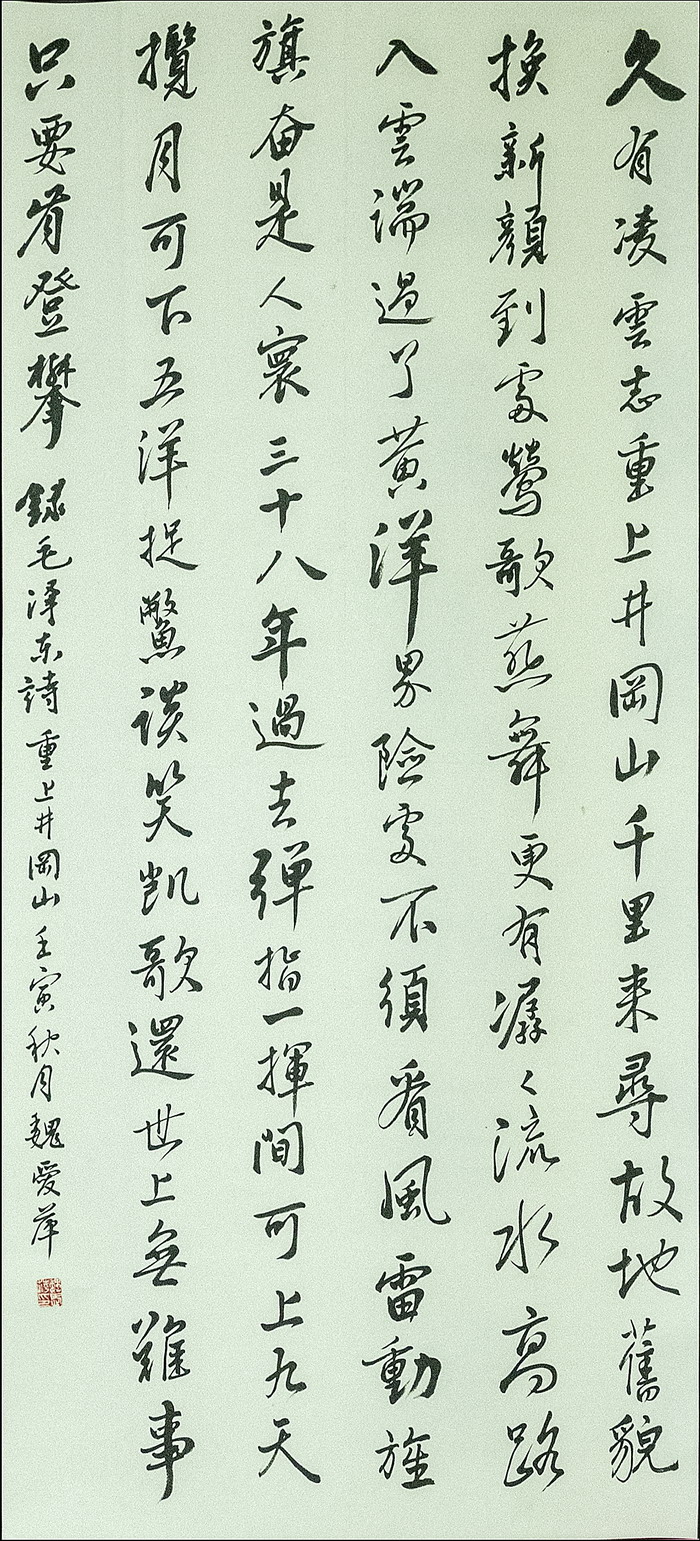 久有凌雲志重上井岡山千里来尋故地舊貌
換新顏到處鶯歌燕舞更有潺々流水高路
入雲端過了黃洋界險處不須看風雷動旌
旗奋是人寰三十八年過去彈指一揮間可上九天
攬月可下五洋捉鱉談笑凯歌還世上無難事
只要肯登攀 録毛澤东詩重上井岡山壬寅秋月魏愛萍